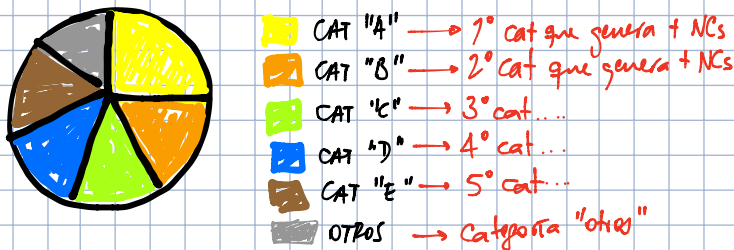 CAT "A" → 1° cat que genera + NCs
CAT "B" → 2° cat que genera + NCs
CAT "C" → 3° cat....
CAT "D" → 4° cat...
CAT "E" → 5° cat...
OTROS → categoria "otros"